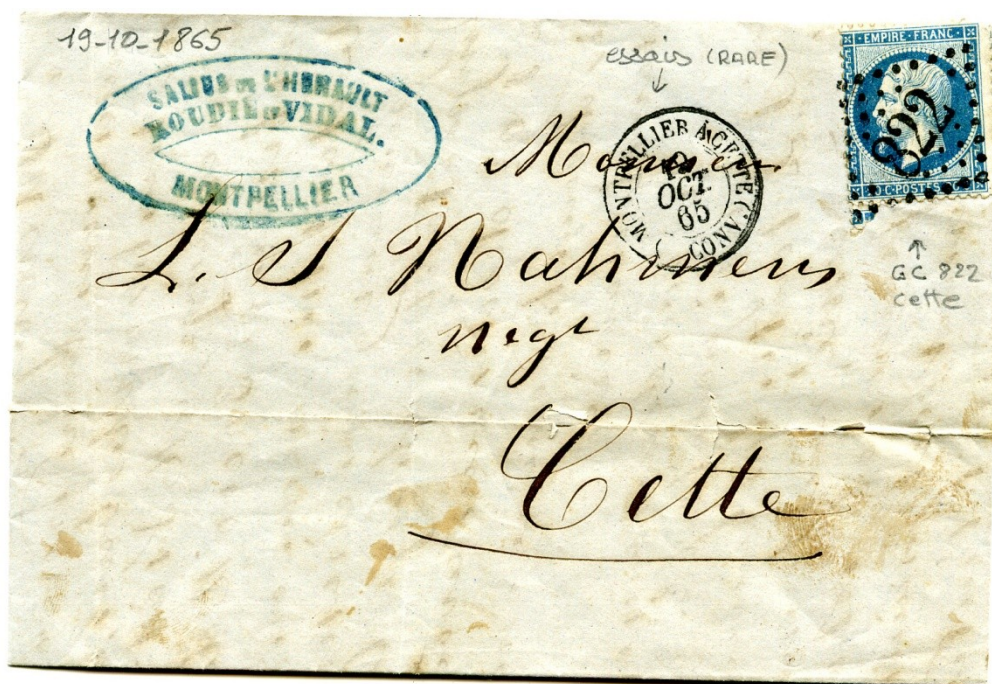 19-10-1865
SALINS DE L'HERAULT
ROUDIE & VIDAL.
MONTPELLIER
essais (RARE)
↓
MONTPELLIER À CETTE (ANCO
19
OCT.
65
EMPIRE FRANC
822
C. POSTES
↑
GC 822
cette
Monsieur
L. S
negt
Cette